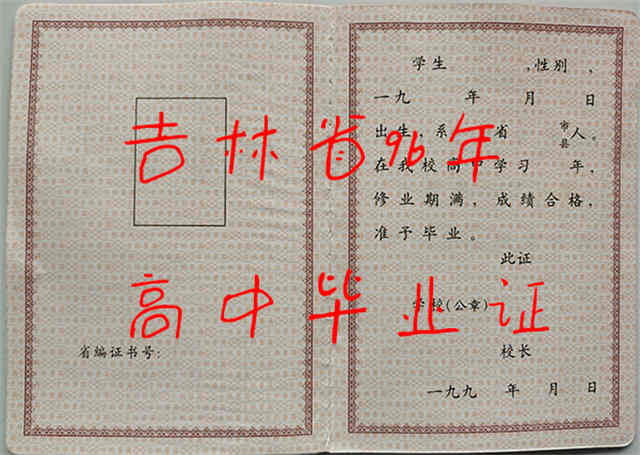 学生 ,性别 ,
一九 年 月 日
出生,系 省 市县 人。
在我校高中学习 年,
修业期满,成绩合格,
准予毕业。
此证
学校(公章)
校长
一九九 年 月 日
省编证书号:
吉林省96年
高中毕业证